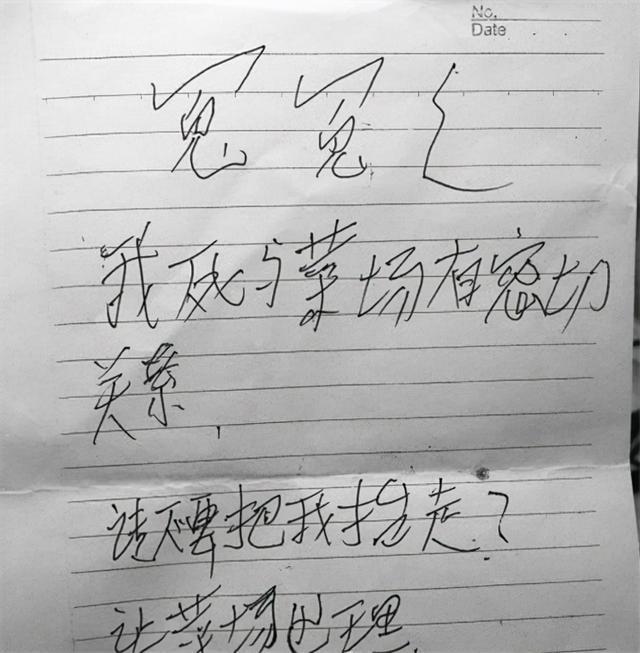 No.
Date
冤 冤
我死与菜场有密切
关系.
请不要把我抬走?
让菜场理